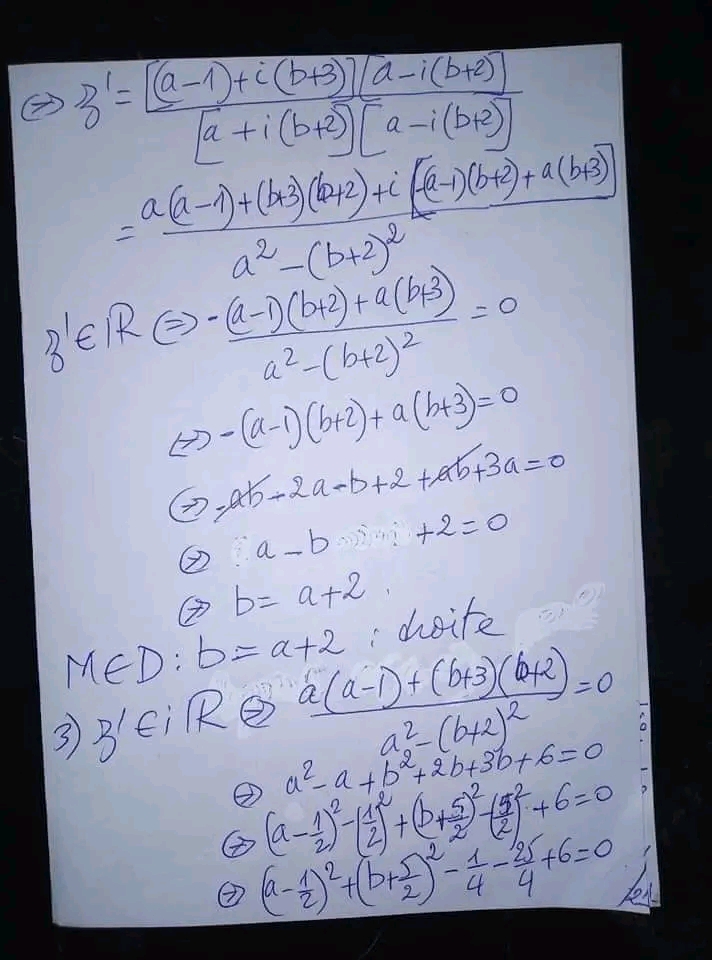 ⇔ z' = [(a-1)+i(b+3)][a-i(b+2)] / [a+i(b+2)][a-i(b+2)]
= a(a-1)+(b+3)(b+2)+i[-(a-1)(b+2)+a(b+3)] / a² - (b+2)²
z' ∈ ℝ ⇔ -(a-1)(b+2)+a(b+3) / a² - (b+2)² = 0
⇔ -(a-1)(b+2)+a(b+3) = 0
⇔ -ab - 2a + b + 2 + ab + 3a = 0
⇔ a - b + 2 = 0
⇔ b = a+2.
M∈D : b = a+2 : droite
3) z' ∈ iℝ ⇔ a(a-1)+(b+3)(b+2) / a² - (b+2)² = 0
⇔ a² - a + b² + 2b + 3b + 6 = 0
⇔ (a - 1/2)² - (1/2)² + (b + 5/2)² - (5/2)² + 6 = 0
⇔ (a - 1/2)² + (b + 5/2)² - 1/4 - 25/4 + 6 = 0